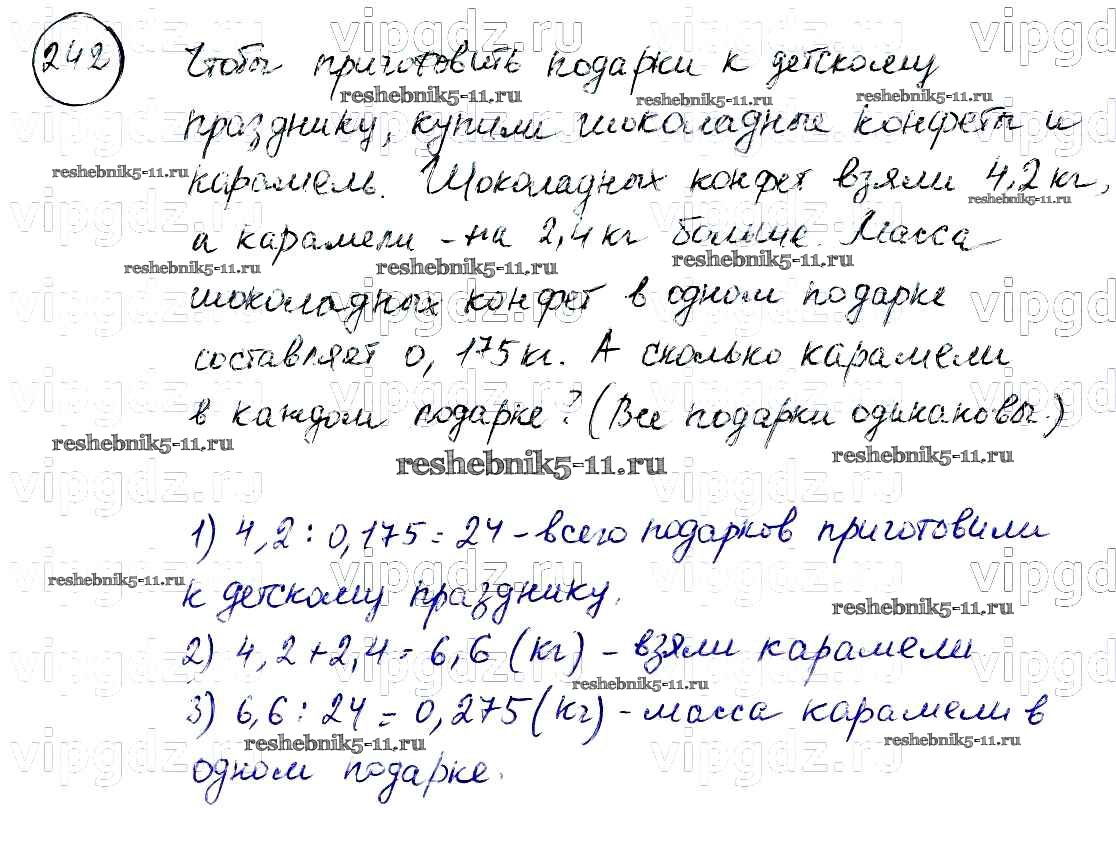 242
Чтобы приготовить подарки к детскому
празднику, купили шоколадные конфеты и
карамель. Шоколадных конфет взяли 4,2 кг,
а карамели - на 2,4 кг больше. Масса
шоколадных конфет в одном подарке
составляет 0,175 кг. А сколько карамели
в каждом подарке? (Все подарки одинаковы.)
1) 4,2 : 0,175 = 24 - всего подарков приготовили
к детскому празднику.
2) 4,2 + 2,4 = 6,6 (кг) - взяли карамели
3) 6,6 : 24 = 0,275 (кг) - масса карамели в
одном подарке.
reshebnik5-11.ru
vipgdz.ru